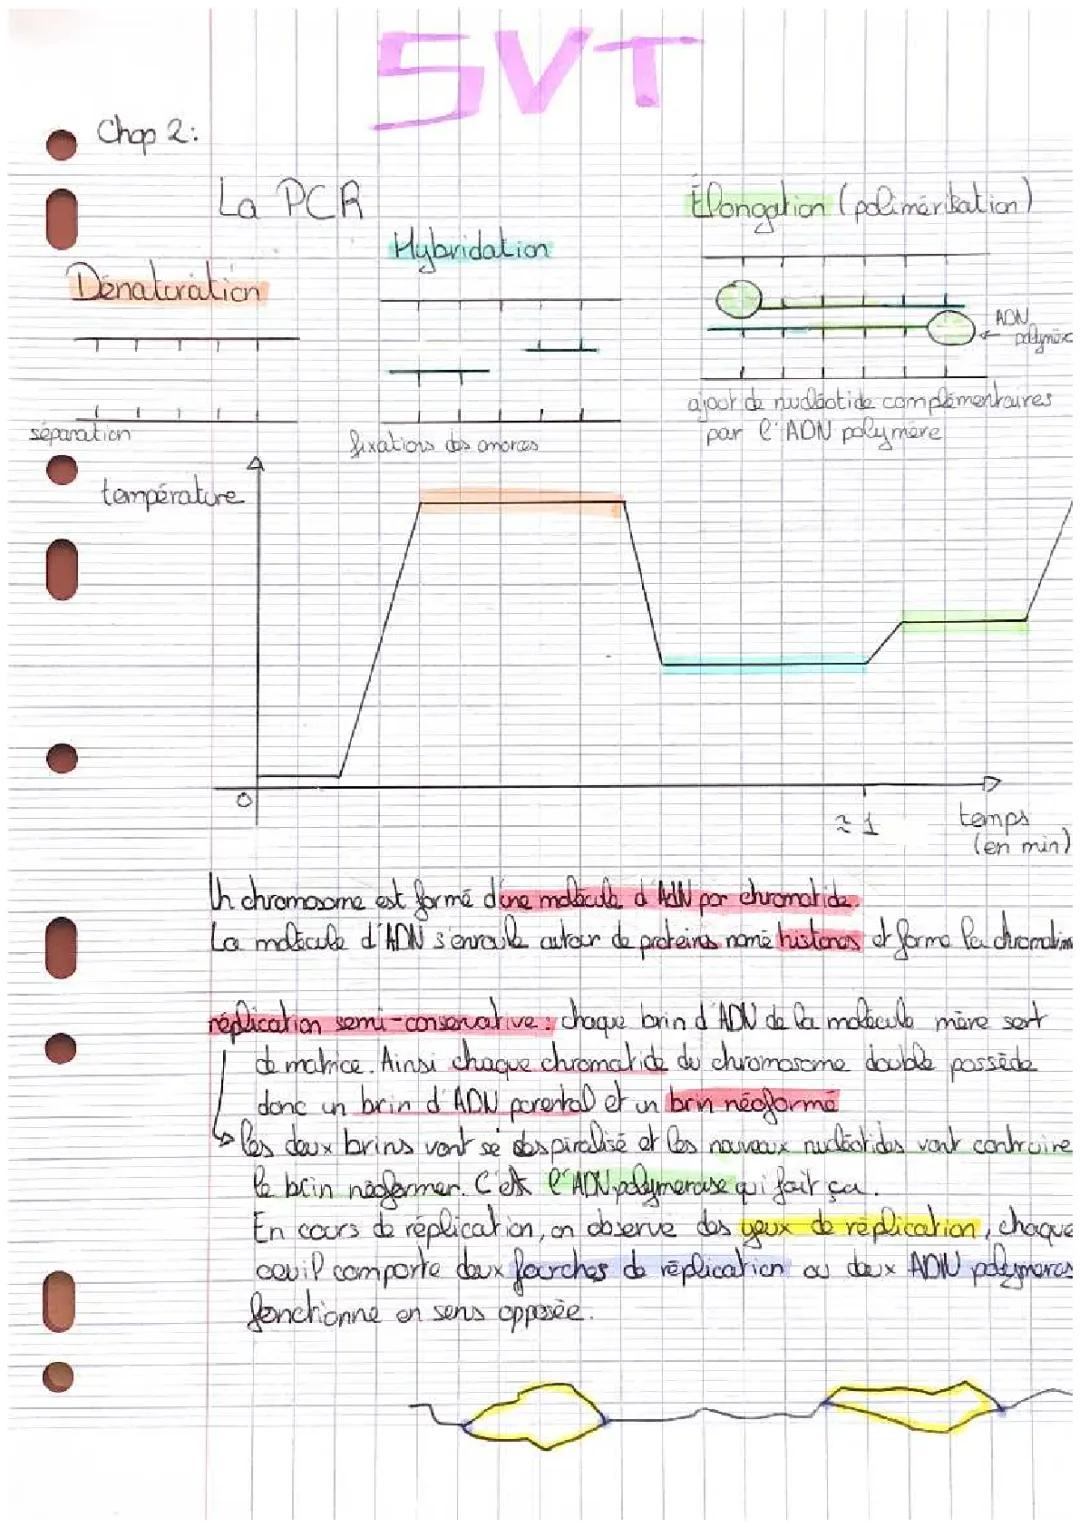 SVT
Chap 2:
La PCR
Dénaturation
Hybridation
Élongation (polimérisation)
ADN
séparation
fixations des amorces
ajout de nucléotide complémentaires
par l'ADN polymère
température
0
≈ 1
temps
(en min)
Un chromosome est formé d'une molécule d'ADN par chromatide.
La molécule d'ADN s'enroule autour de proteins nomé histones et forme la chromatine
réplication semi-conservative : chaque brin d'ADN de la molécule mère sert
de matrice. Ainsi chaque chromatide du chromosome double possède
donc un brin d'ADN parental et un brin néoformé
les deux brins vont se despiralisé et les nouveaux nucléotides vont contruire
le brin néoformer. C'est l'ADN polymerase qui fait ça.
En cours de réplication, on observe des yeux de réplication, chaque
oeuil comporte deux fourches de réplication ou deux ADN polymeras
fonctionne en sens opposée.